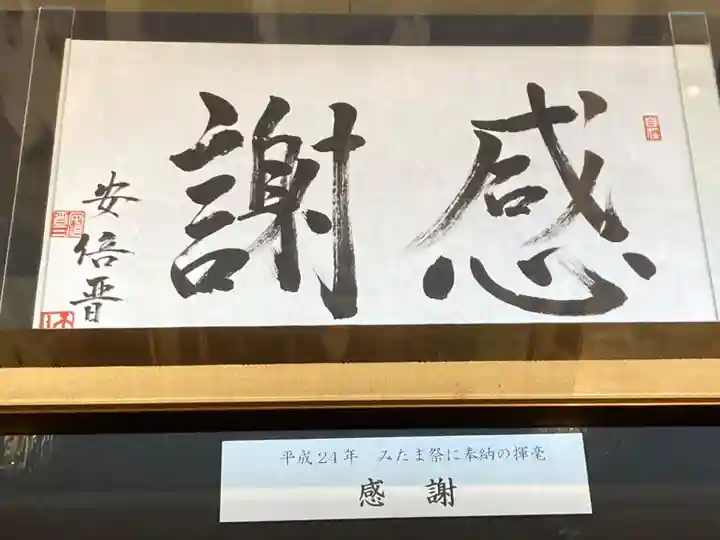 感謝
安倍晋
平成24年 みたま祭に奉納の揮毫
感 謝